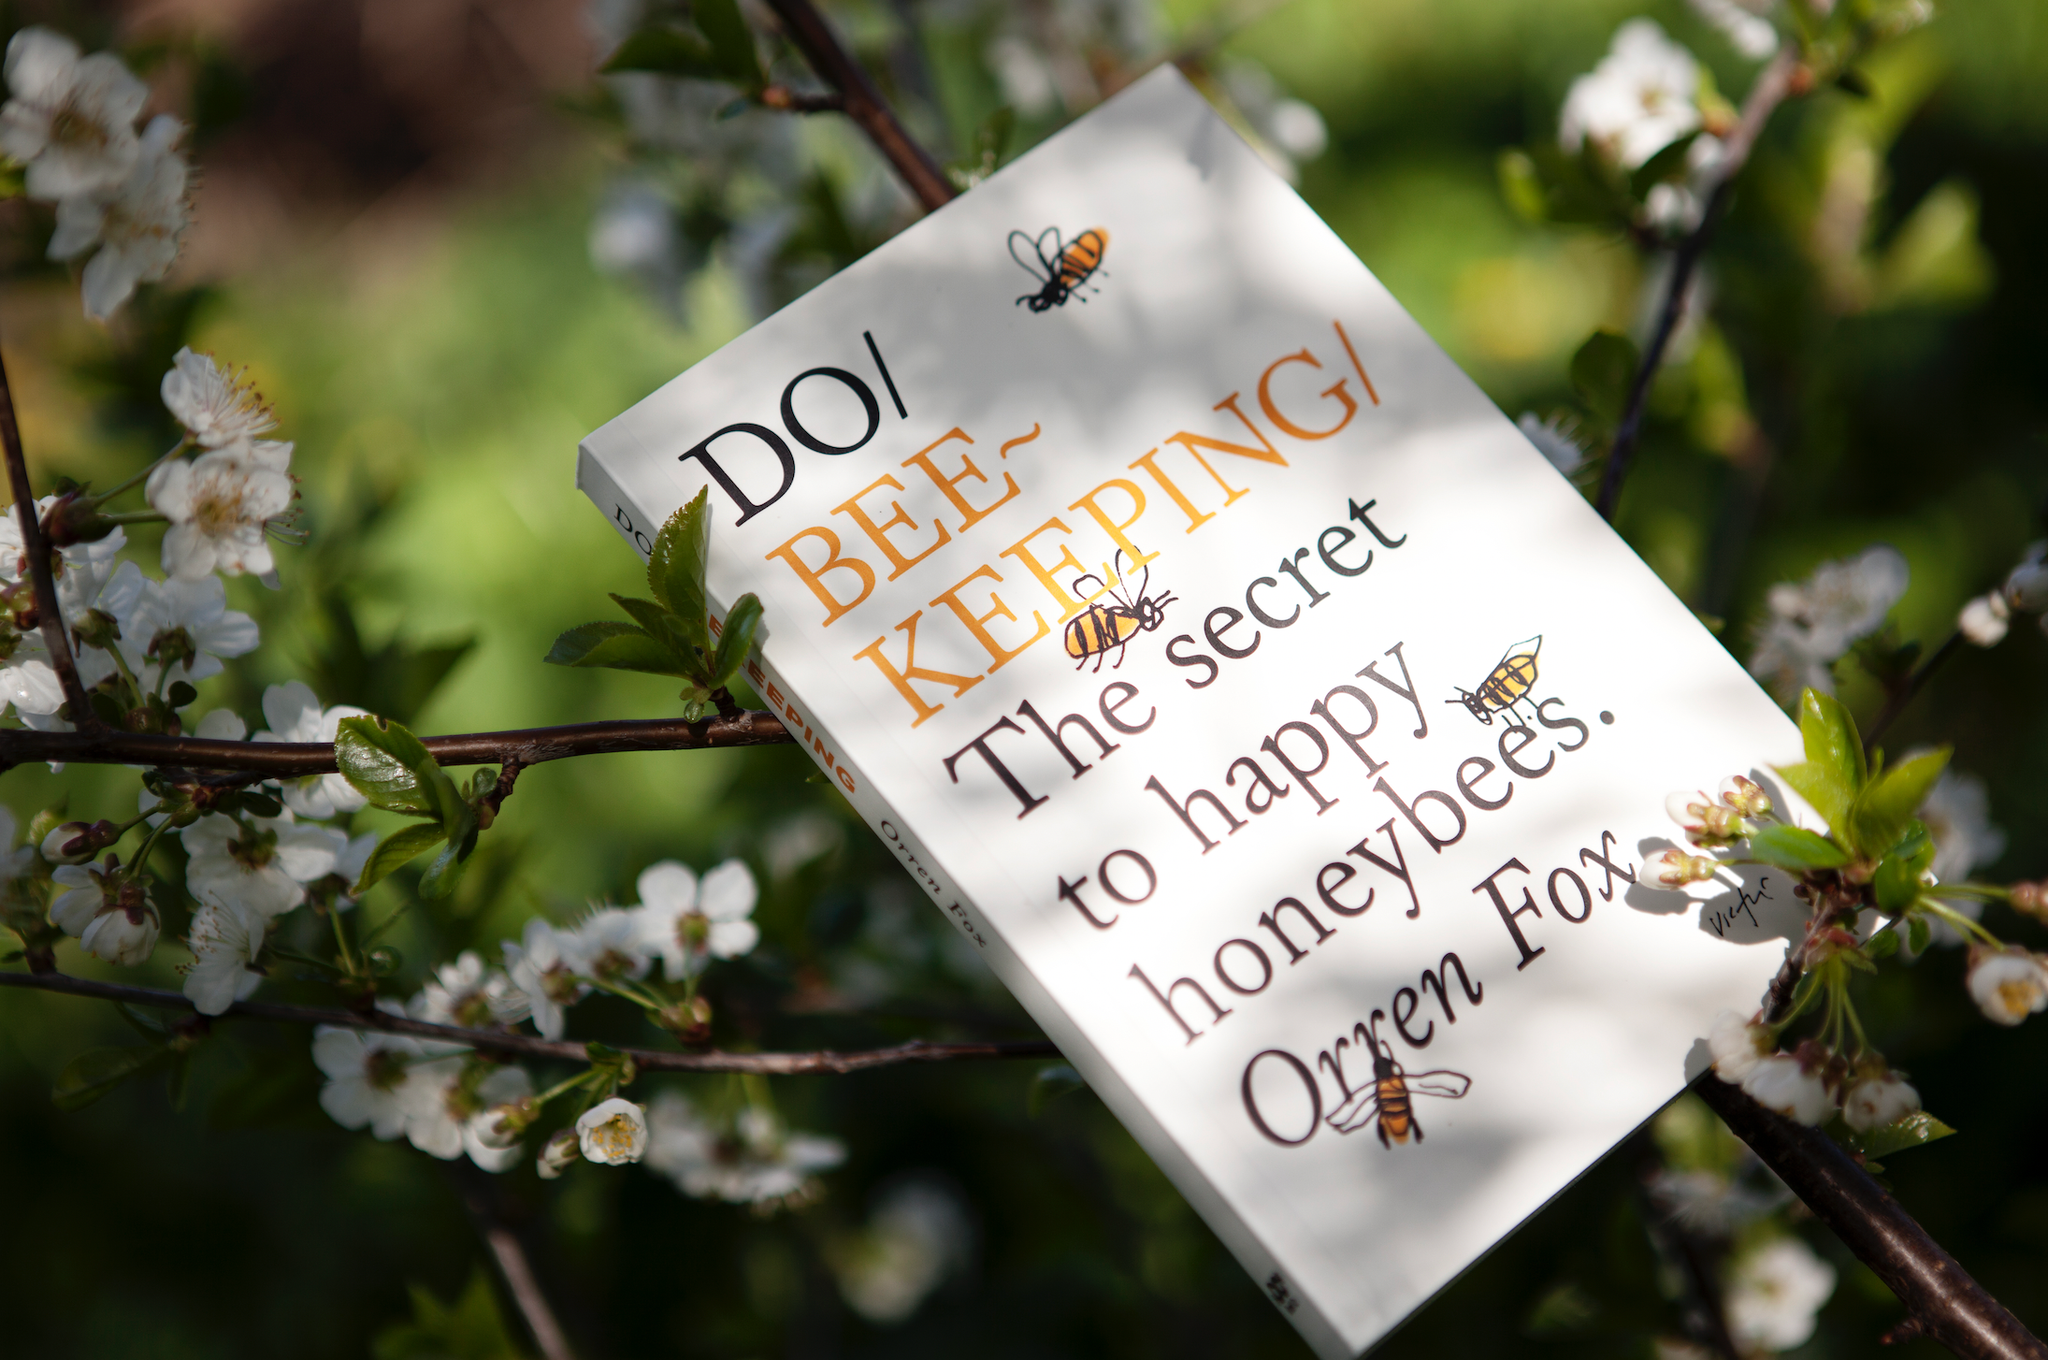 DO/
BEE~
KEEPING/
The secret
to happy
honeybees.
Orren Fox
DO
EEPING
Orren Fox